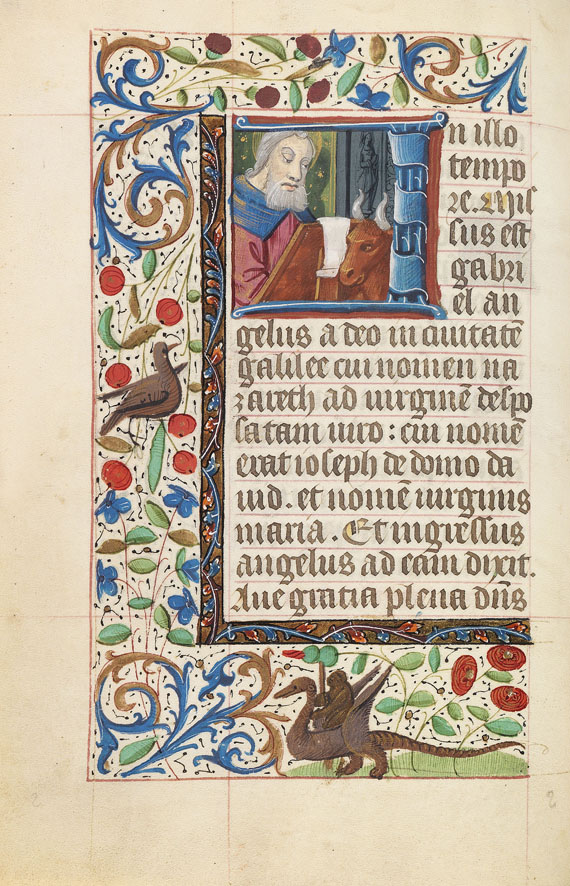 In illo
tempo
re. Mis
sus est
gabri
el an
gelus a deo in ciuitatē
galilee cui nomen na
zareth ad uirginē despo
satam uiro : cui nomē
erat ioseph de domo da
uid . et nomē uirginis
maria . Et ingressus
angelus ad eam dixit .
Aue gratia plena dn̄s